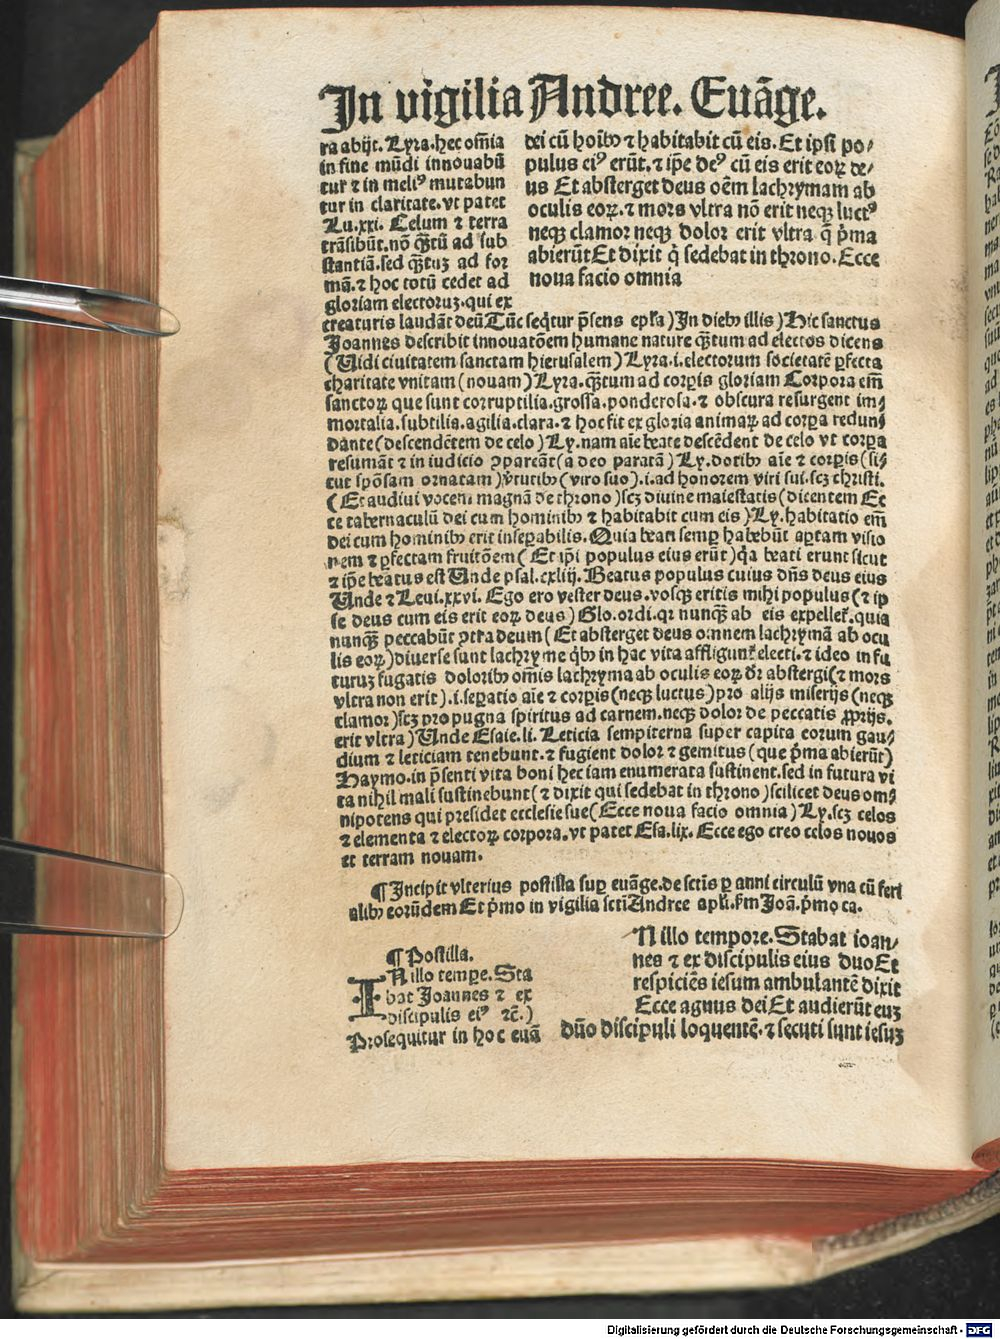 In vigilia Andree. Euāge.
ra abijt. Lyra. hec om̄ia
in fine mūdi innouabū
tur ⁊ in meliꝰ mutabun
tur in claritate. vt patet
Lu. xxi. Celum ⁊ terra
trāsibūt. nō q̄ꝫtū ad sub
stantiā. sed q̄ꝫtuꝫ ad for
mā. ⁊ hoc totū cedet ad
gloriam electoruꝫ. qui ex
dei cū hoībꝫ ⁊ habitabit cū eis. Et ipsi po⸗
pulus eiꝰ erūt. ⁊ ip̄e deꝰ cū eis erit eoꝝ de⸗
us Et absterget deus oēm lachrymam ab
oculis eoꝝ. ⁊ mors vltra nō erit neqꝫ luctꝰ
neqꝫ clamor neqꝫ dolor erit vltra q̄ p̄ma
abierūt Et dixit q̇ sedebat in throno. Ecce
noua facio omnia
creaturis laudāt deū Tūc seq̇tur p̄sens ep̄la) In diebꝫ illis) Hic sanctus
Joannes describit innouatōem humane nature q̄ꝫtum ad electos dicens
(Uidi ciuitatem sanctam hierusalem) Lyra. i. electorum societatē ꝑfecta
charitate vnitam (nouam) Lyra. q̄ꝫtum ad corpis gloriam Corpora em̄
sanctoꝝ que sunt corruptilia. grossa. ponderosa. ⁊ obscura resurgent im⸗
mortalia. subtilia. agilia. clara. ⁊ hoc fit ex gloria animaꝝ ad corpa redun⸗
dante (descendētem de celo) Ly. nam aīe beate descēdent de celo vt corpa
resumāt ⁊ in iudicio ꝯpareāt (a deo paratā) Ly. dotibꝫ aīe ⁊ corpis (si⸗
cut spōsam ornatam) v̇tutibꝫ (viro suo). i. ad honorem viri sui. scꝫ christi.
(Et audiui vocem magnā de throno) scꝫ diuine maiestatis (dicentem Ec
ce tabernaculū dei cum hominibꝫ ⁊ habitabit cum eis) Ly. habitatio em̄
dei cum hominibꝫ erit inseꝑabilis. Quia beati semꝑ habebūt aptam visio
nem ⁊ ꝑfectam fruitōem (Et ip̄i populus eius erūt) q̇a beati erunt sicut
⁊ ip̄e beatus est Unde psal. cxliij. Beatus populus cuius dn̄s deus eius
Unde ⁊ Leui. xxvi. Ego ero vester deus. vosqꝫ eritis mihi populus (⁊ ip
se deus cum eis erit eoꝝ deus) Glo. ordi. qꝛ nunqꝫ̄ ab eis expelleť. quia
nunqꝫ̄ peccabūt ꝯtra deum (Et absterget deus omnem lachrymā ab ocu
lis eoꝝ) diuerse sunt lachryme q̇bꝫ in hac vita affligunť electi. ⁊ ideo in fu
turuꝫ fugatis doloribꝫ om̄is lachryma ab oculis eoꝝ dr̄ abstergi (⁊ mors
vltra non erit). i. seꝑatio aīe ⁊ corpis (neqꝫ luctus) pro alijs miserijs (neqꝫ
clamor) scꝫ pro pugna spiritus ad carnem. neqꝫ dolor de peccatis ꝓprijs.
erit vltra) Unde Esaie. li. Leticia sempiterna super capita eorum gau⸗
dium ⁊ leticiam tenebunt. ⁊ fugient dolor ⁊ gemitus (que p̄ma abierūt)
Haymo. in p̄senti vita boni hec iam enumerata sustinent. sed in futura vi
ta nihil mali sustinebunt (⁊ dixit qui sedebat in throno) scilicet deus om⸗
nipotens qui presidet ecclesie sue (Ecce noua facio omnia) Ly. scꝫ celos
⁊ elementa ⁊ electoꝝ corpora. vt patet Esa. lix. Ecce ego creo celos nouos
et terram nouam.
¶ Incipit vlterius postilla suꝑ euāge. de sctīs ꝑ anni circulū vna cū feri
alibꝫ eorūdem Et p̄mo in vigilia sctī Andree apl̄i. ſm Joā. p̄mo ca.
¶ Postilla.
IN illo tempe. Sta
bat Joannes ⁊ ex
discipulis eiꝰ ⁊c̄.)
Prosequitur in hoc euā
N illo tempore. Stabat ioan⸗
nes ⁊ ex discipulis eius duo Et
respiciēs iesum ambulantē dixit
Ecce agnus dei Et audierūt euꝫ
duo discipuli loquentē. ⁊ secuti sunt iesuꝫ
Digitalisierung gefördert durch die Deutsche Forschungsgemeinschaft - DFG